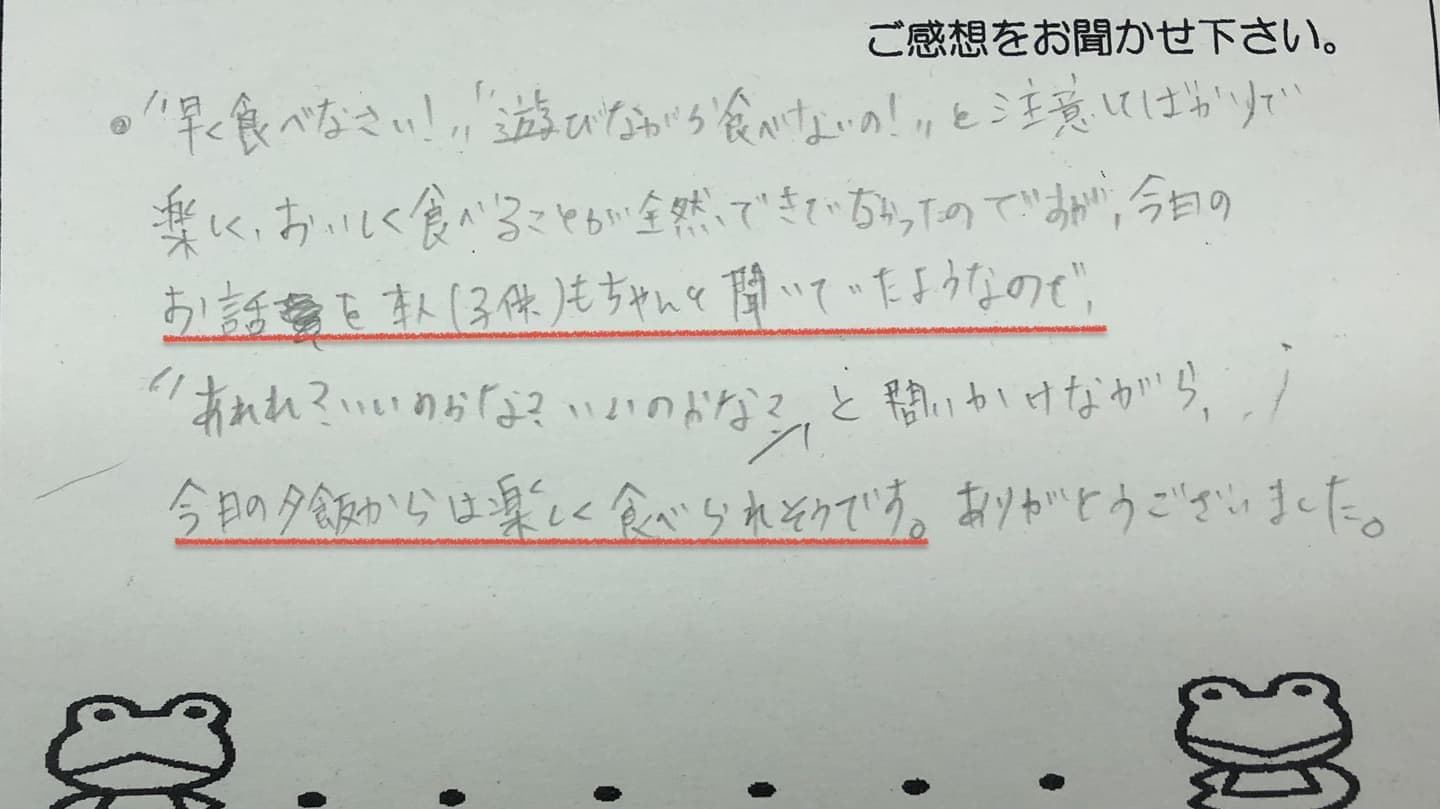 ご感想をお聞かせ下さい。
"早く食べなさい！" "遊びながら食べないの！" と注意してばかりで
楽しく、おいしく食べることが全然、できでなかったのですが、今日の
お話を本人(子供)もちゃんと聞いていたようなので、
"あれれ？いいのかな？いいのかな？" と問いかけながら、
今日の夕飯からは楽しく食べられそうです。ありがとうございました。